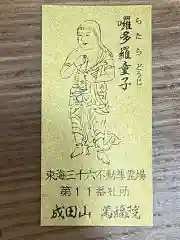 囉多羅童子
らたらどうじ
東海三十六不動尊霊場
第11番札所
成田山 萬福院